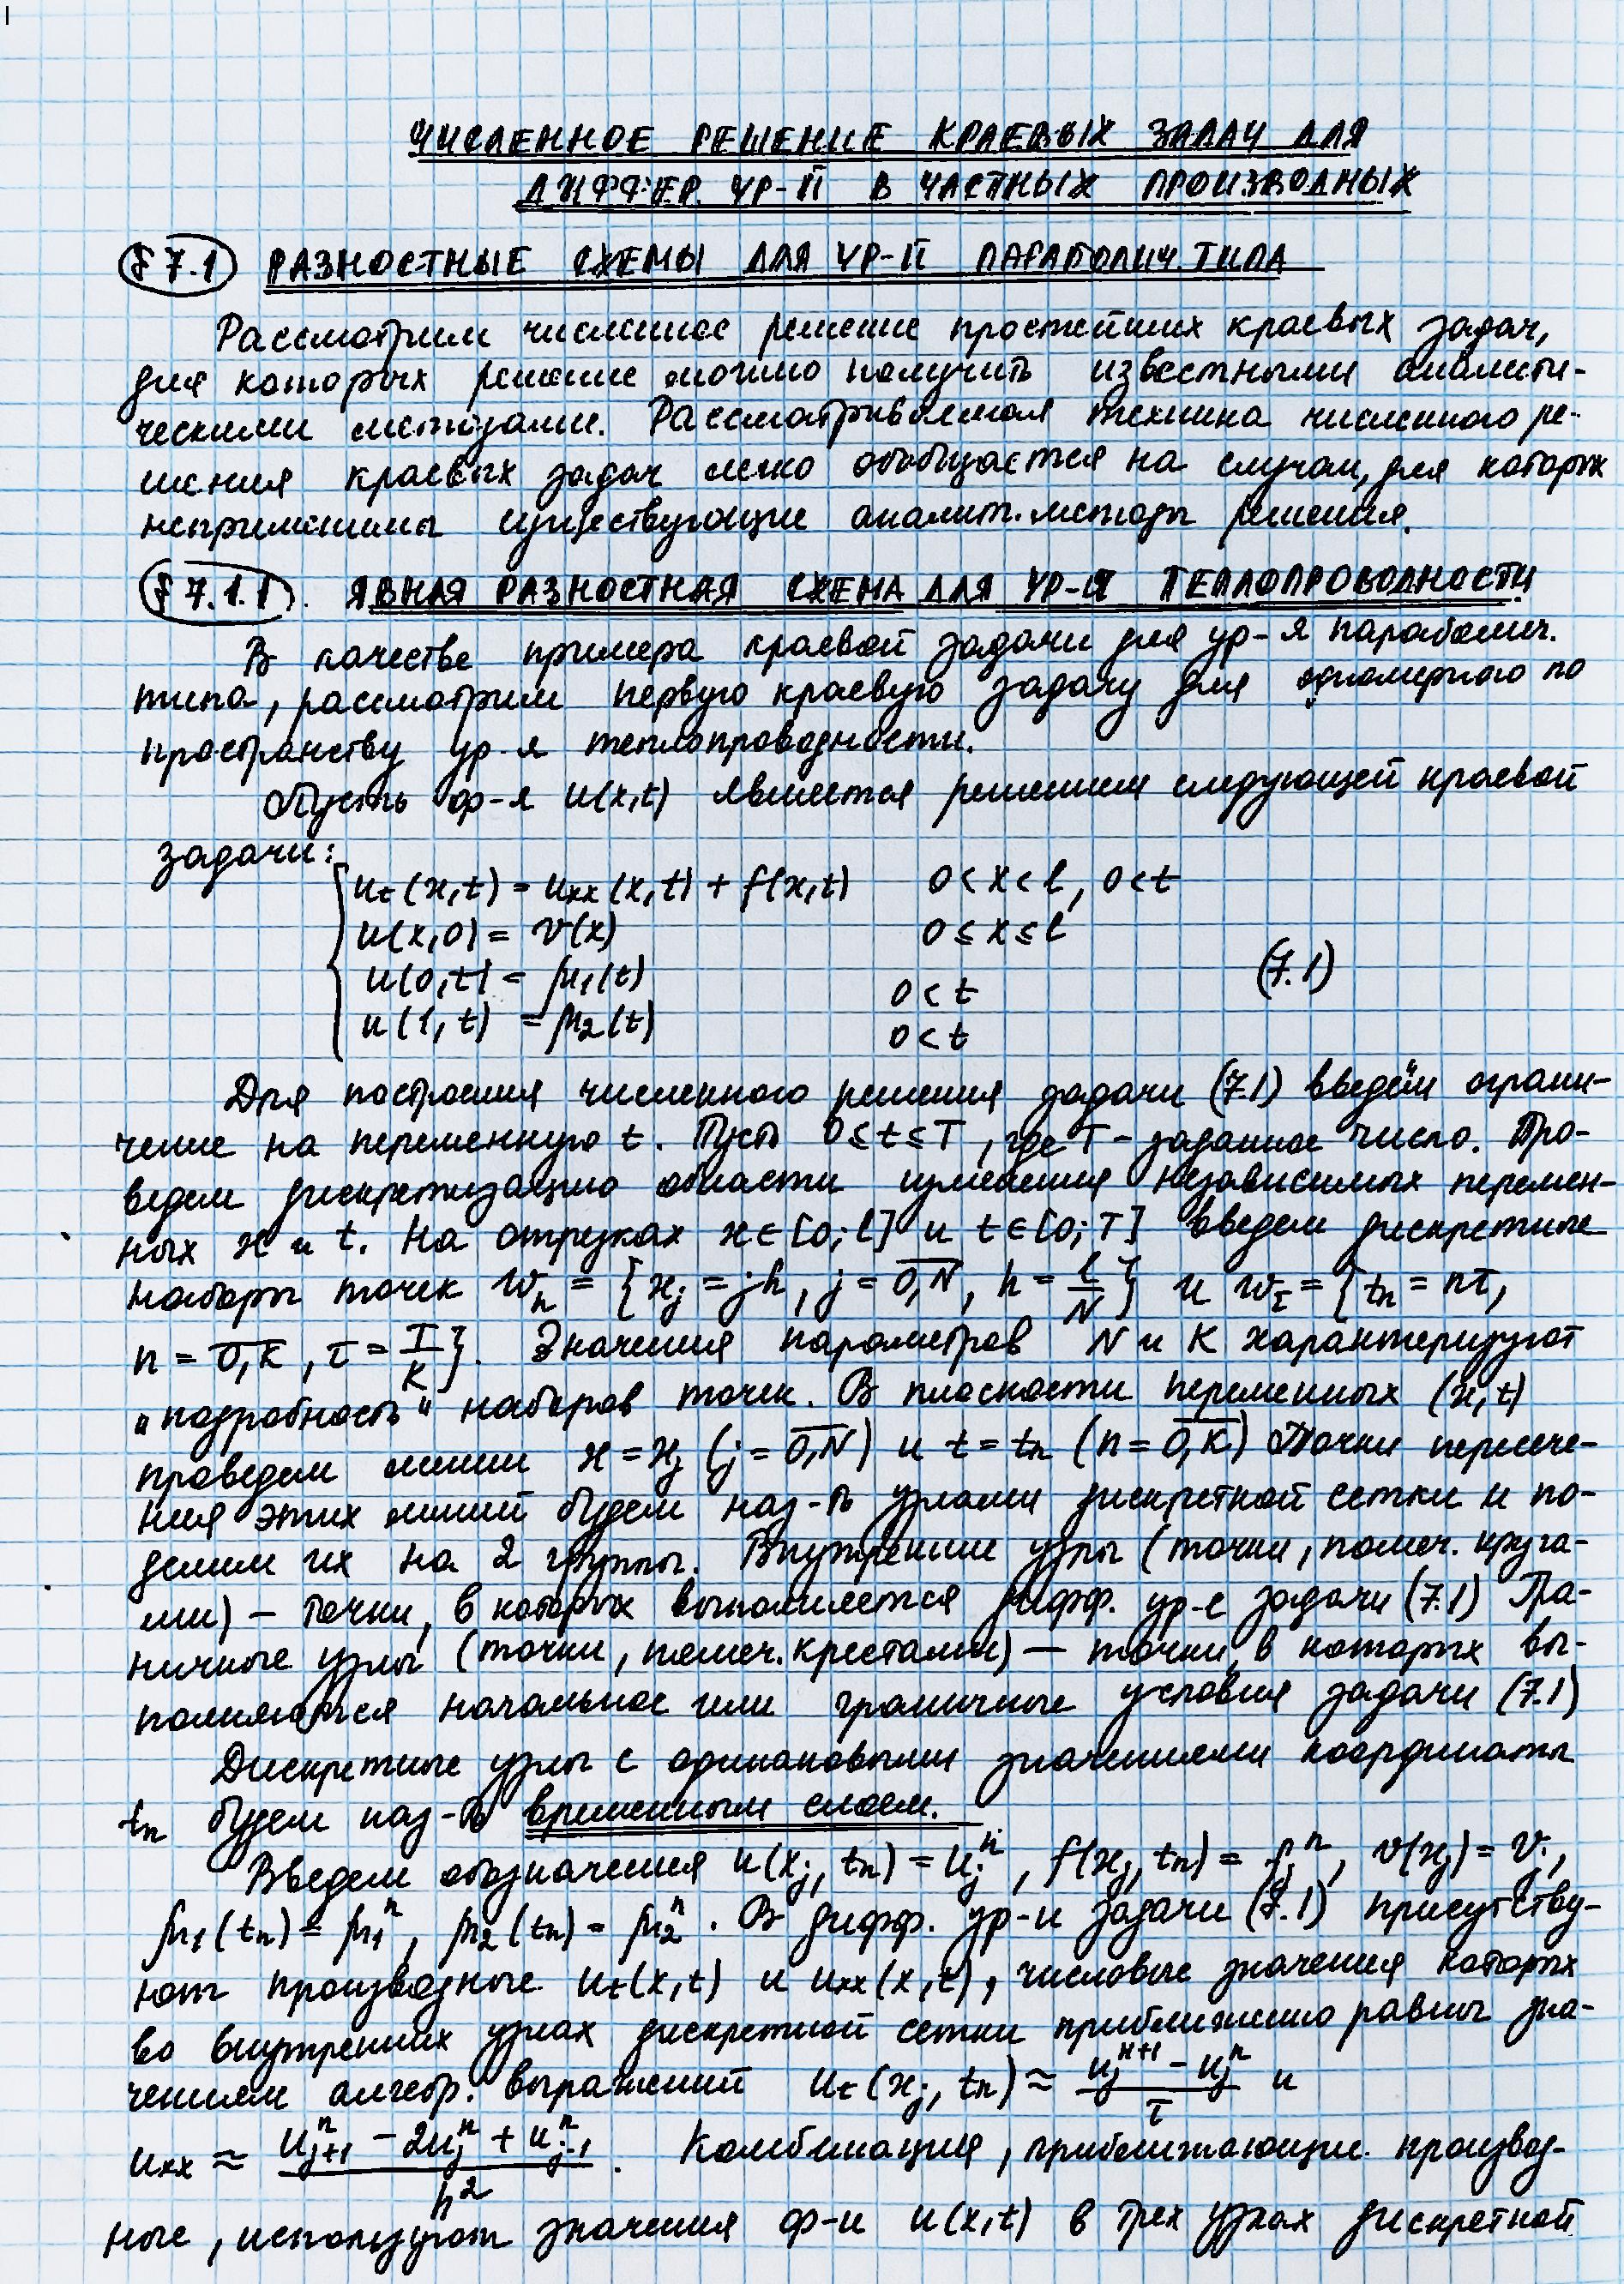 ЧИСЛЕННОЕ РЕШЕНИЕ КРАЕВЫХ ЗАДАЧ ДЛЯ
ДИФФЕР. УР-Й В ЧАСТНЫХ ПРОИЗВОДНЫХ
§ 7.1 РАЗНОСТНЫЕ СХЕМЫ ДЛЯ УР-Й ПАРАБОЛИЧ. ТИПА
Рассмотрим численное решение простейших краевых задач,
для которых решение можно получить известными аналити-
ческими методами. Рассматриваемая техника численного ре-
шения краевых задач легко обобщается на случаи, для которых
неприменимы существующие аналит. методы решения.
§ 7.1.1. ЯВНАЯ РАЗНОСТНАЯ СХЕМА ДЛЯ УР-Я ТЕПЛОПРОВОДНОСТИ
В качестве примера краевой задачи для ур-я параболич.
типа, рассмотрим первую краевую задачу для одномерного по
пространству ур-я теплопроводности.
Пусть ф-я u(x,t) является решением следующей краевой
задачи:
u_t(x,t) = u_xx(x,t) + f(x,t) 0<x<l, 0<t
u(x,0) = v(x) 0≤x≤l
u(0,t) = μ₁(t) 0<t (7.1)
u(1,t) = μ₂(t) 0<t
Для построения численного решения задачи (7.1) введём ограни-
чение на переменную t. Пусть 0≤t≤T, где T - заданное число. Про-
ведем дискретизацию области изменения независимых перемен-
ных x и t. На отрезках x∈[0;l] и t∈[0;T] введем дискретные
наборы точек w_h = {x_j = jh, j = 0,N, h = l/N} и w_τ = {t_n = nτ,
n = 0,K, τ = T/K}. Значения параметров N и K характеризуют
"подробность" наборов точек. В плоскости переменных (x,t)
проведем линии x = x_j (j = 0,N) и t = t_n (n = 0,K) Точки пересече-
ния этих линий будем наз-ть узлами дискретной сетки и по-
делим их на 2 группы. Внутренние узлы (точки, помеч. круга-
ми) – точки, в которых выполняется дифф. ур-е задачи (7.1) Гра-
ничные узлы (точки, помеч. крестами) — точки, в которых вы-
полняются начальное или граничные условия задачи (7.1)
Дискретные узлы с одинаковыми значениями координаты
t_n будем наз-ть временным слоем.
Введем обозначения u(x_j, t_n) = u_j^n, f(x_j, t_n) = f_j^n, v(x_j) = v_j,
μ₁(t_n) = μ₁^n, μ₂(t_n) = μ₂^n. В дифф. ур-и задачи (7.1) присутству-
ют производные u_t(x,t) и u_xx(x,t), числовые значения которых
во внутренних узлах дискретной сетки приближенно равны зна-
чениям алгебр. выражений u_t(x_j, t_n) ≈ (u_j^{n+1} - u_j^n)/τ и
u_xx ≈ (u_{j+1}^n - 2u_j^n + u_{j-1}^n)/h². Комбинации, приближающие производ-
ные, используют значения ф-и u(x,t) в трех узлах дискретной